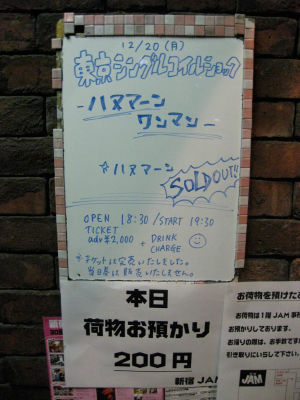 12/20 (月)
東京シングルコイルショック
-ハヌマーン
ワンマン-
☆ハヌマーン
SOLDOUT!!
OPEN 18:30/START 19:30
TICKET
adv¥2,000 + DRINK
CHARGE
※チケットは完売いたしました。
当日券は販売いたしません。
本日
荷物お預かり
200円
新宿JAM
お荷物を預けたお
お荷物は1階JAM事務
お預かりしております。
お帰りの際は、お手数ですが
引き取りにいらして下さい。
JAM